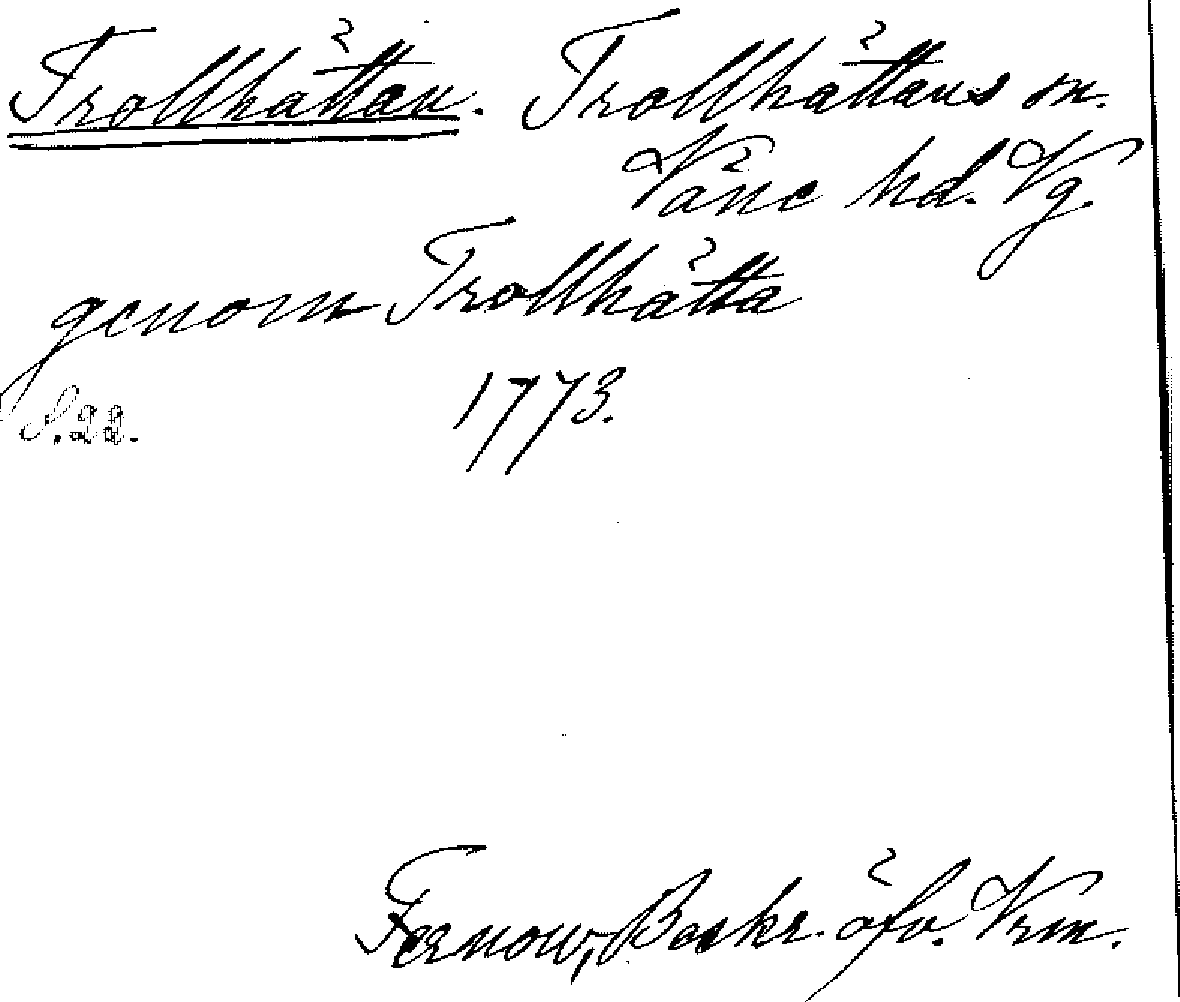 Trollhättan. Trollhättans sn.
Väne hd. Vg.
genom Trollhätta
S. 22. 1773.
Fernow, Beskr. öfv. Vrm.